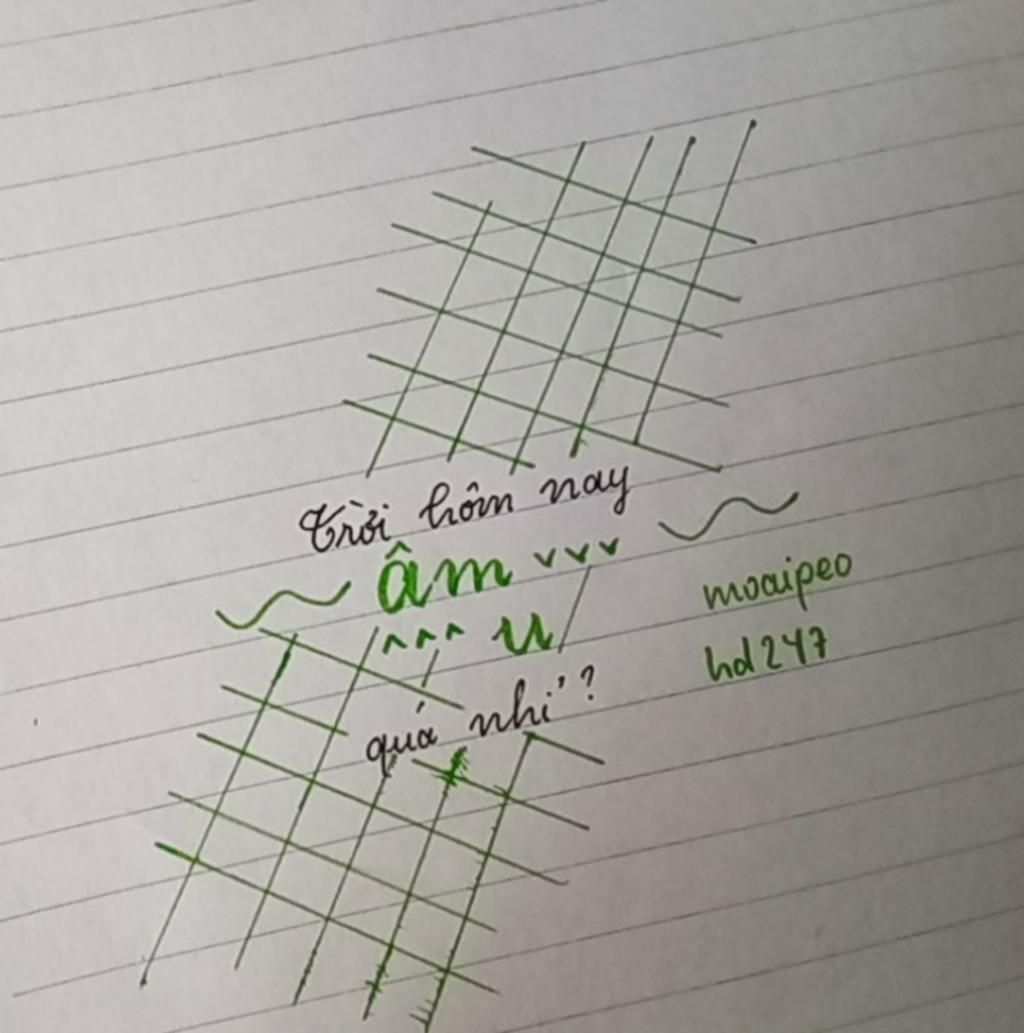 Trời hôm nay
âm
u
quá nhỉ?
moaipeo
hd247